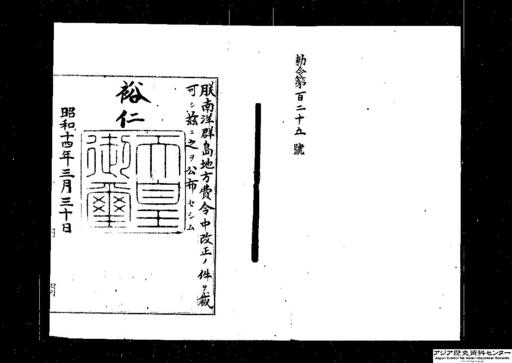 勅令第百二十五號
朕南洋群島地方費令中改正ノ件ヲ裁
可シ茲ニ之ヲ公布セシム
裕仁
天皇
御璽
昭和十四年三月三十日
アジア歴史資料センター
Japan Center for Asian Historical Records